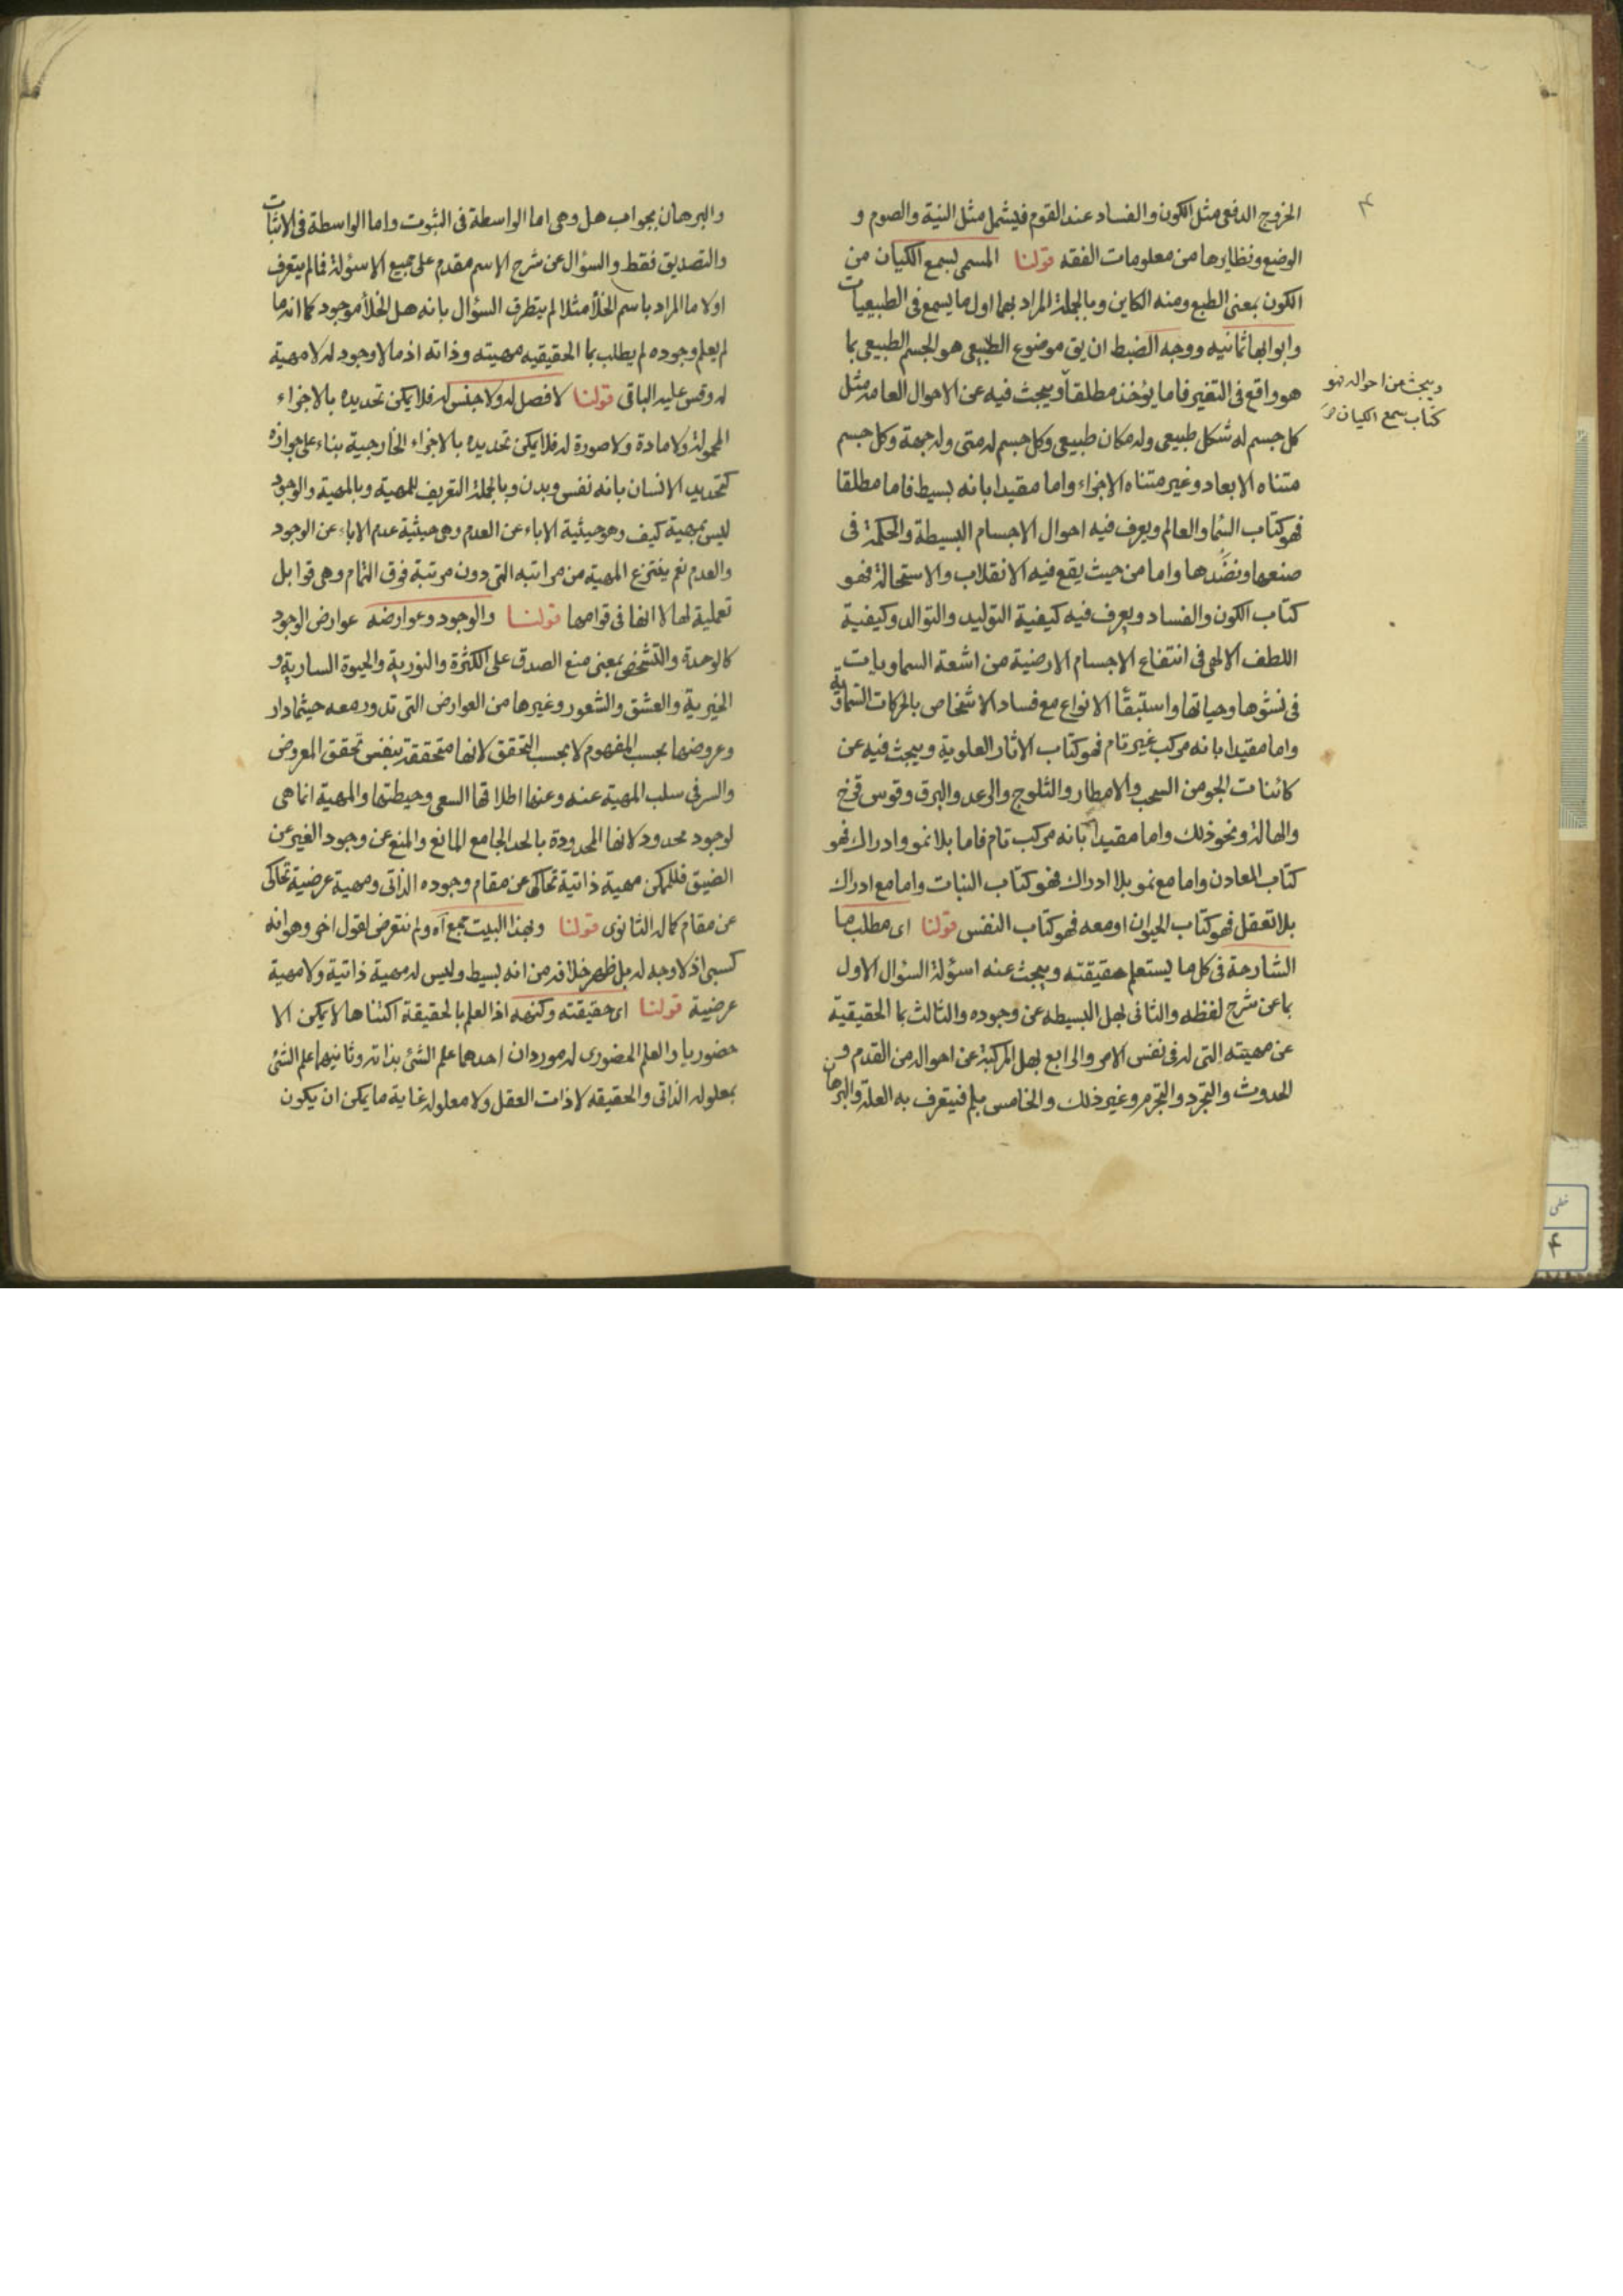 ۴
الخروج الدفعى مثل الكون والفساد عند القوم فيشمل مثل النية والصوم و
الوضع ونظايرها من معلومات الفقه قولنا المسمى بسمع الكيان من
الكون بمعنى الطبع ومنه الكاين وبالجملة المراد بهما اول ما يسمع فى الطبيعيات
وابوابها ثمانيه ووجه الضبط ان يق موضوع الطبيعى هو الجسم الطبيعى بما
هو واقع فى التغير فاما يؤخذ مطلقا ويبحث فيه عن الاحوال العامه مثل
ويبحث من احواله فهو
كتاب سمع الكيان
كل جسم له شكل طبيعى وله مكان طبيعى وكل جسم له متى وله جهة وكل جسم
متناه الابعاد وغير متناه الاجزاء واما مقيدا بانه بسيط فاما مطلقا
فهو كتاب السماو العالم ويعرف فيه احوال الاجسام البسيطة والحكمة فى
صنعها ونضدها واما من حيث يقع فيه الانقلاب والاستحالة فهو
كتاب الكون والفساد ويعرف فيه كيفية التوليد والتوالد وكيفية
اللطف الالهى فى انتفاع الاجسام الارضية من اشعة السماويات
فى نشوها وحياتها واستبقا الانواع مع فساد الاشخاص بالحركات السماوية
واما مقيدا بانه مركب غير تام فهو كتاب الاثار العلوية ويبحث فيه عن
كائنات الجو من السحب والامطار والثلوج والرعد والبرق وقوس قزح
والهالة ونحو ذلك واما مقيدا بانه مركب تام فاما بلا نمو وادراك فهو
كتاب المعادن واما مع نمو بلا ادراك فهو كتاب النبات واما مع ادراك
بلا تعقل فهو كتاب الحيوان او معه فهو كتاب النفس قولنا اى مطلب ما
الشارحة فى كل ما يستعلم حقيقته ويبحث عنه اسؤلة السؤال الاول
بما عن شرح لفظه والثانى بهل البسيطه عن وجوده والثالث بما الحقيقية
عن مهيته التى له فى نفس الامر والرابع بهل المركبة عن احواله من القدم و
الحدوث والتجرد والتجرم وغير ذلك والخامس بلم فيتعرف به العلة والبرهان
والبرهان بجواب هل وهى اما الواسطة فى الثبوت واما الواسطة فى الاثبات
والتصديق فقط والسؤال عن شرح الاسم مقدم على جميع الاسؤلة فما لم يتعرف
اولا ما المراد باسم الخلأ مثلا لم يتطرق السؤال بانه هل الخلأ موجود كما انه ما
لم يعلم وجوده لم يطلب بما الحقيقيه مهيته وذاته اذ ما لا وجود له لا مهية
له وقس عليه الباقى قولنا لا فصل له ولا جنس له فلا يمكن تحديده بالاجزاء
المحمولة ولا مادة ولا صورة له فلا يمكن تحديده بالاجزاء الخارجية بناء على جوازه
كتحديد الانسان بانه نفس وبدن وبالجملة التعريف للمهية وبالمهية والوجود
ليس بمهية كيف وهو حيثية الاباء عن العدم وهى حيثية عدم الاباء عن الوجود
والعدم نعم ينتزع المهية من مراتبه التى دون مرتبة فوق التمام وهى قوابل
تعملية لها لا انها فى قوامها قولنا والوجود وعوارضه عوارض الوجود
كالوحدة والتشخص بمعنى منع الصدق على الكثرة والنورية والحيوة السارية و
الخيرية والعشق والشعور وغيرها من العوارض التى تدور معه حيثما دار
وعروضها بحسب المفهوم لا بحسب التحقق لانها متحققة بنفس تحقق المعروض
والسر فى سلب المهية عنه وعنها اطلاقها السعى وحيطتها والمهية انما هى
لوجود محدود لانها المحدودة بالحد الجامع المانع والمنع عن وجود الغير عن
الضيق فللممكن مهية ذاتية تحاكى عن مقام وجوده الذاتى ومهية عرضية تحاكى
عن مقام كماله الثانوى قولنا وبهذا البيت جمع آه ولم نتعرض لقول اخر وهو انه
كسبى اذ لا وجه له بل ظهر خلافه من انه بسيط وليس له مهية ذاتية ولا مهية
عرضية قولنا اى حقيقته وكنهه اذ العلم بالحقيقة اكتناها لا يمكن الا
حضوريا والعلم الحضورى له موردان احدهما علم الشئ بذاته وثانيهما علم الشئ
بمعلوله الذاتى والحقيقه لا ذات العقل ولا معلوله غاية ما يمكن ان يكون
خطى
۴